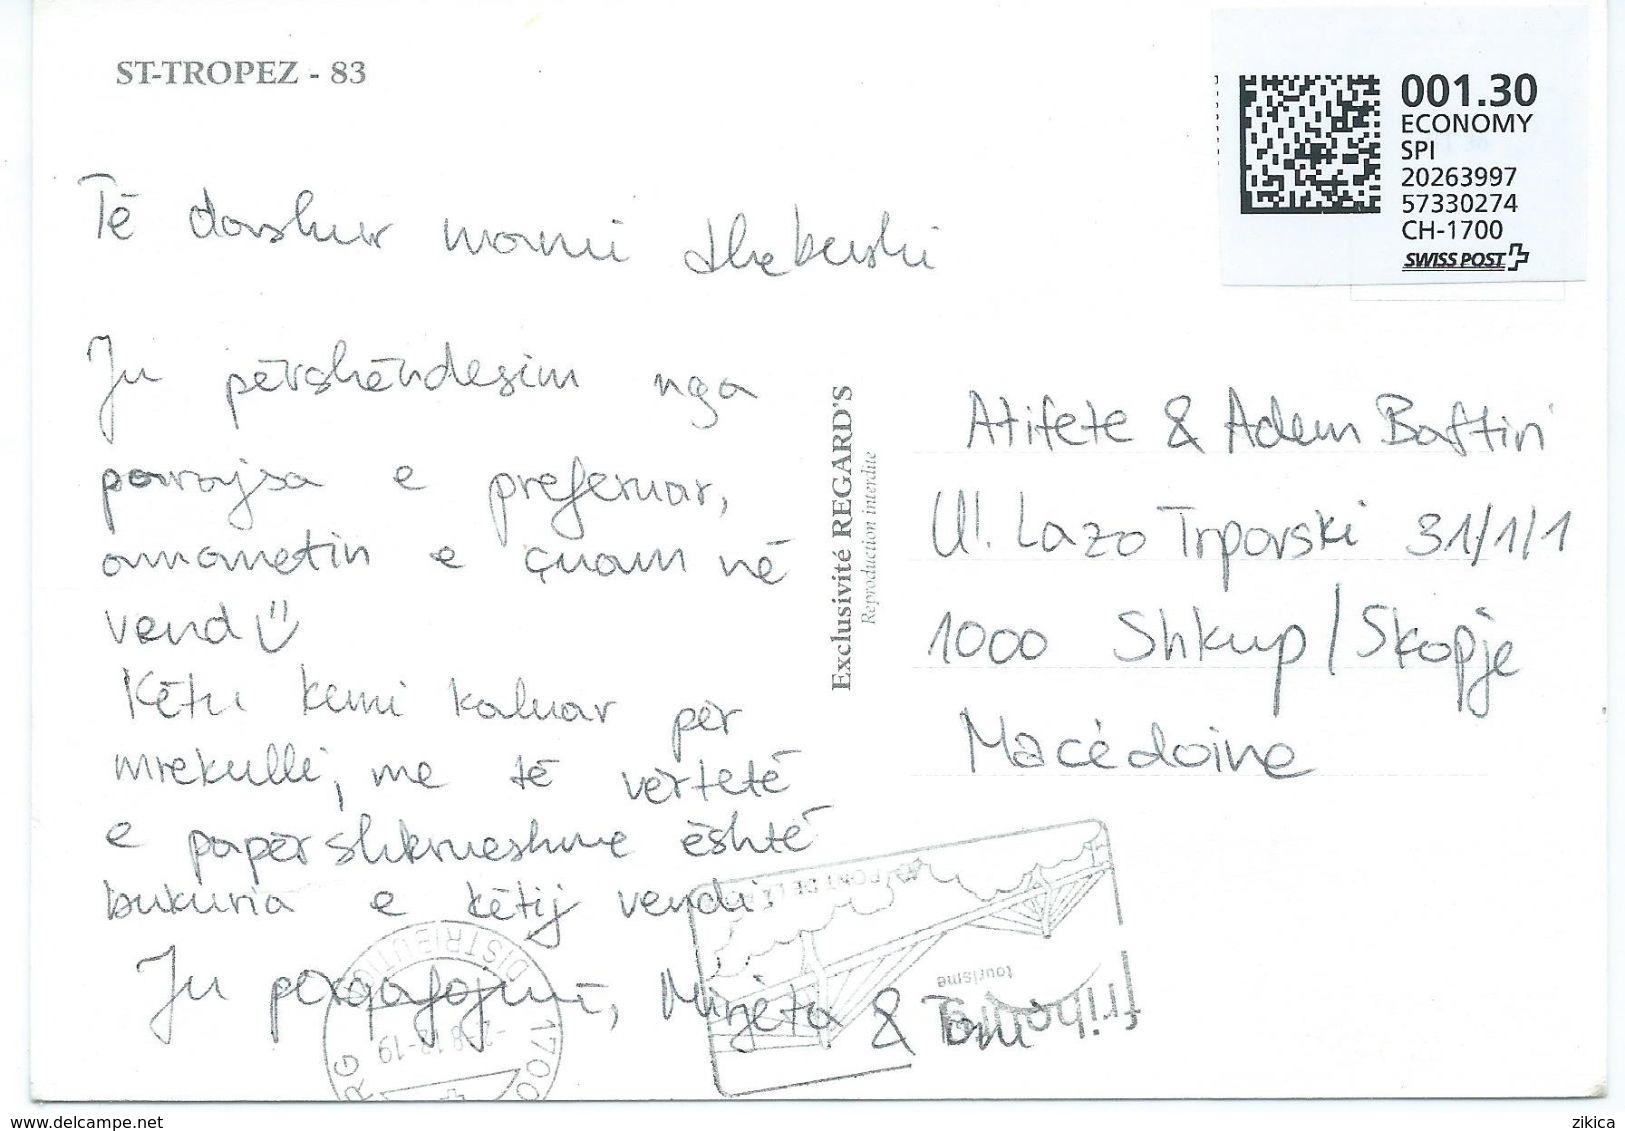 ST-TROPEZ - 83
001.30
ECONOMY
SPI
20263997
57330274
CH-1700
SWISS POST
Të dashur mami dhe babushi
Ju përshëndesim nga
parajsa e preferuar,
amanetin e çuam në
vend
Këtu kemi kaluar për
mrekulli, me të vërtetë
e papërshkrueshme është
bukuria e këtij vendi.
Ju përqafojmë, Mirjeta & Toni
Exclusivité REGARD'S
Reproduction interdite
Atifete & Adem Baftiri
Ul. Lazo Trpovski 31/1/1
1000 Shkup/Skopje
Macédoine
PONT DE LA
fribourg
tourisme
1700
DISTRIBUTION
zikica
www.delcampe.net